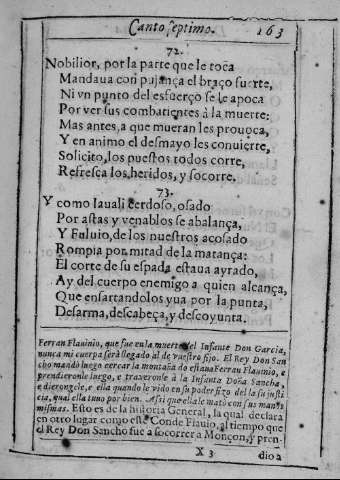 Canto septimo. 163
72.
Nobilior, por la parte que le toca
Mandaua con pujança el braço fuerte,
Ni vn punto del esfuerço se le apoca
Por ver sus combatientes à la muerte:
Mas antes, a que mueran les prouoca,
Y en animo el desmayo les conuierte,
Solicito, los puestos todos corre,
Refresca los heridos, y socorre.
73.
Y como Iauali cerdoso, osado
Por astas y venablos se abalança,
Y Fuluio, de los nuestros acosado
Rompia por mitad de la matança:
El corte de su espada estaua ayrado,
Ay del cuerpo enemigo a quien alcança,
Que ensartandolos yua por la punta,
Desarma, descabeça, y descoyunta.
Ferran Flauinio, que fue en la muerte del Infante Don Garcia,
nunca mi cuerpo serà llegado al de vuestro fijo. El Rey Don San
cho mandò luego cercar la montaña do estaua Ferran Flauinio, e
prendieronle luego, e traxeronle à la Infanta Doña Sancha,
e dierongele, e ella quando le vido en su poder fizo del la su justi
cia, qual ella tuuo por bien. Assi que ella le matò con sus manos
mismas. Esto es de la historia General, la qual declara
en otro lugar como este Conde Flauio, al tiempo que
el Rey Don Sancho fue a socorrer a Monçon, y pren-
X 3 dio a